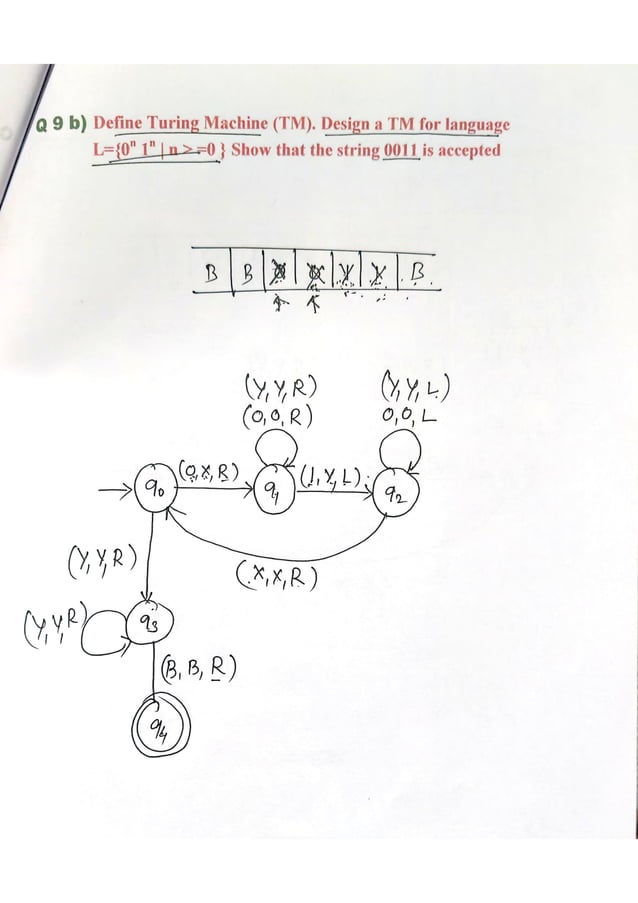 Q 9 b) Define Turing Machine (TM). Design a TM for language
L={0ⁿ 1ⁿ | n >=0 } Show that the string 0011 is accepted
B B B
(Y, Y, R) (Y, Y, L)
(0, 0, R) 0, 0, L
q0 (0, X, R) q1 (1, Y, L) q2
(Y, Y, R) (X, X, R)
(Y, Y, R) q3
(B, B, R)
q4